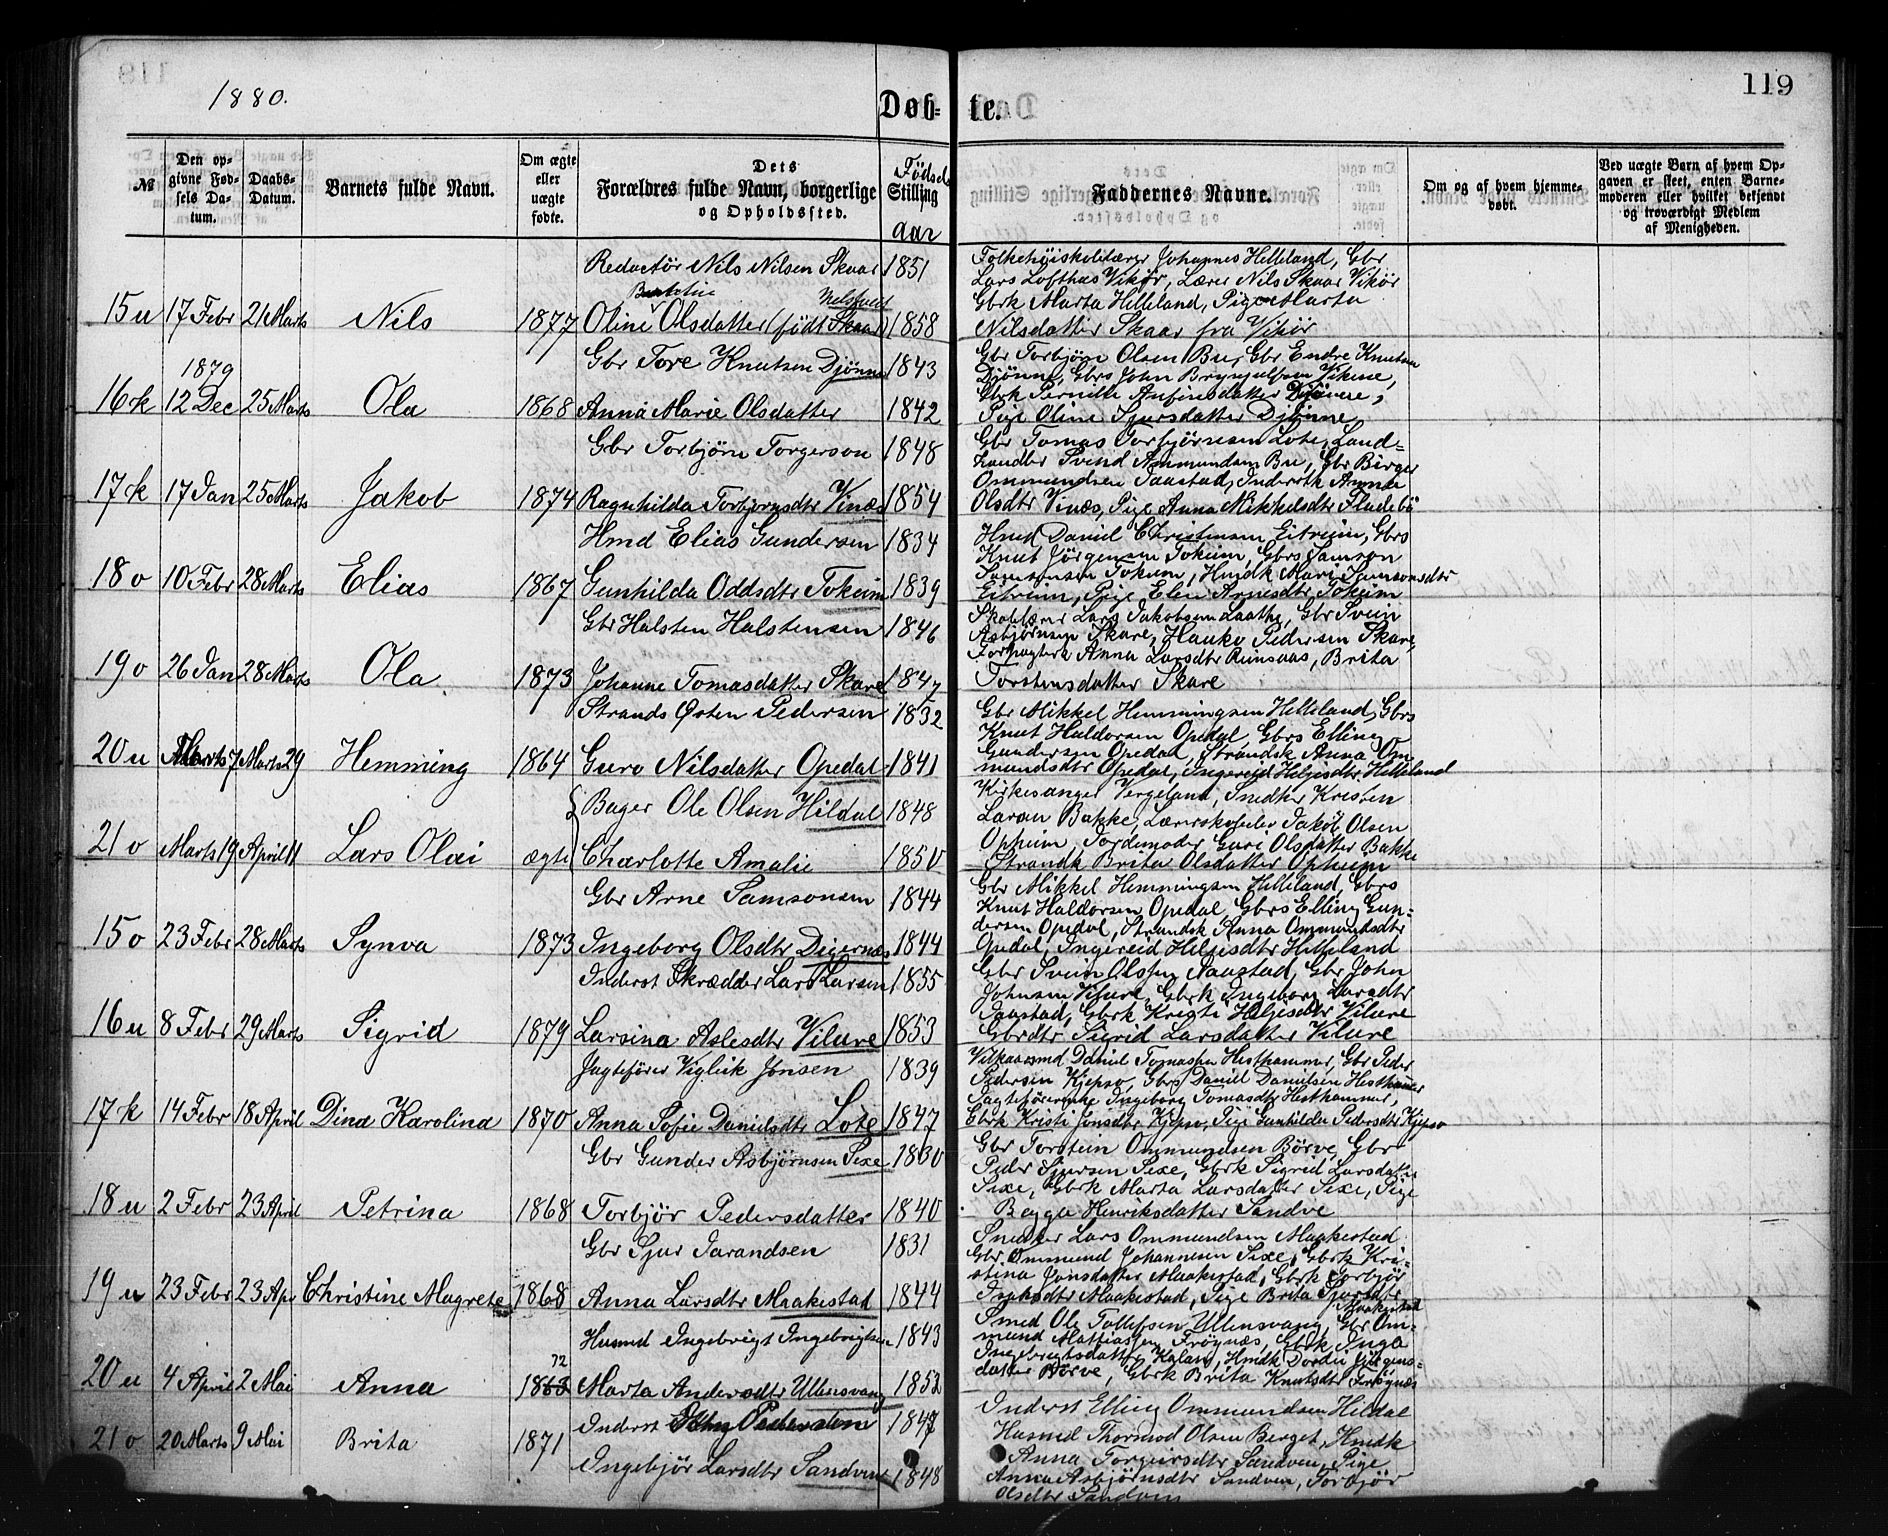 1880.
Døb- te.
119
№
Den opgivne Fødsels Datum.
Daabs-Datum.
Barnets fulde Navn.
Om ægte eller uægte fødte.
Dets Forældres fulde Navn, borgerlige og Opholdssted.
Stilling
Fødsels aar
Faddernes Navne.
Om og af hvem hjemmedøbt.
Ved uægte Barn af hvem Opgaven er skeet, enten Barnemoderen eller hvilket bekjendt og troværdigt Medlem af Menigheden.
Redactør Nils Nilsen Skaar 1851
15 u 17 Febr 21 Marts Nils 1877 Oline Olsdatter (født Skaar) 1858
Folkehøiskolelærer Johannes Helleland, Gbr
Lars Lofthus Vikør, Lærer Nils Skaar Vikør
Gbrk Marta Helleland, Pige Marta
Nilsdatter Skaar fra Vikør
1879
Gbr Tore Knutsen Djønne 1843
16 k 12 Dec 25 Marts Ola 1868 Anna Marie Olsdatter 1842
Gbr Torbjørn Olsen Bu, Gbr Endre Knutsen
Djønne, Gbrs John Brynjulfsen Vikene,
Gbrk Pernille Anfinsdatter Djønne,
Pige Oline Sjursdatter Djønne
Gbr Torbjørn Torgerson 1848
17 k 17 Jan 25 Marts Jakob 1874 Ragnhilda Torbjørnsdtr Vinæs 1854
Gbr Tomas Torbjørnsen Lote, Land-
handler Svend Ammundsen Bu, Gbr Birger
Ommundsen Jaastad, Inderstk Anna
Olsdtr Vinæs, Pige Anna Mikkelsdtr Fladebø
Hmd Elias Gundersen 1834
18 o 10 Febr 28 Marts Elias 1867 Gunhilda Oddsdtr Tokeim 1839
Hmd Daniel Christensen Eitreim, Gbrs
Knut Jørgensen Tokeim, Gbrs Samson
Samsonsen Tokeim, Hmdk Mari Samsonsdtr
Eitreim, Pige Elen Arnesdtr Tokeim
Gbr Halsten Halstensen 1846
19 o 26 Jan 28 Marts Ola 1873 Johanne Tomasdatter Skare 1847
Skolelærer Lars Jakobsen Laathe, Gbr Svein
Asbjørnsen Skare, Hauko Pedersen Skare,
Forpagterk Anna Larsdtr Reinsaas, Brita
Torstensdatter Skare
Strands Østen Pedersen 1832
20 u Marts 7 Marts 29 Hemming 1864 Guro Nilsdatter Opedal 1841
Gbr Mikkel Hemmingsen Helleland, Gbrs
Knut Haldorsen Opedal, Gbrs Elling
Gundersen Opedal, Strandsk Anna Om-
mundsdtr Opedal, Ingereid Helgesdtr Helleland
Bager Ole Olsen Hildal 1848
21 o Marts 19 April 11 Lars Olai ægte Charlotte Amalie 1850
Kirkesanger Vergeland, Snedker Kristen
Larsen Bakke, Lærerskoleelev Jakob Olsen
Opheim, Jordemoder Guri Olsdatter Bakke
Strandk Brita Olsdatter Opheim
Gbr Arne Samsonsen 1844
15 o 23 Febr 28 Marts Synva 1873 Ingeborg Olsdtr Digernæs 1844
Gbr Mikkel Hemmingsen Helleland, Gbrs
Knut Haldorsen Opedal, Gbrs Elling Gun-
dersen Opedal, Strandsk Anna Ommundsdtr
Opedal, Ingereid Helgesdtr Helleland
Inderst Skrædder Lars Larsen 1855
16 u 8 Febr 29 Marts Sigrid 1879 Larsina Aslesdtr Vilure 1853
Gbr Svein Olsen Jaastad, Gbr John
Johnsen Vilure, Gbrk Ingeborg Larsdtr
Jaastad, Gbrk Kristi Helgesdtr Vilure
Gbrdtr Sigrid Larsdatter Vilure
Jagtefører Viglik Jonsen 1839
17 k 14 Febr 18 April Dina Karolina 1870 Anna Sofie Danielsdtr Lote 1847
Vilkaarsmd Daniel Tomassen Hesthammer, Gbr Peder
Pedersen Kjepso, Gbrs Daniel Danielsen Hesthamer
Jagteførerenke Ingeborg Tomasdtr Hesthammer,
Gbrk Kristi Jonsdtr Kjepso, Pige Gunhilda Pedersdtr Kjepso
Gbr Gunder Asbjørnsen Sexe 1830
18 u 2 Febr 23 April Petrina 1868 Torbjør Pedersdatter 1840
Gbr Torstein Ommundsen Børve, Gbr
Peder Sjursen Sexe, Gbrk Sigrid Larsdatter
Sexe, Gbrk Marta Larsdatter Sexe, Pige
Bagga Henriksdatter Sandve
Gbr Sjur Jarandsen 1831
19 u 23 Febr 23 Apr Christine Magrete 1868 Anna Larsdtr Maakestad 1844
Snedker Lars Ommundsen Maakestad
Gbr Ommund Johannesen Sexe, Gbrk Kri-
stina Jonsdatter Maakestad, Gbrk Torbjør
Maakestad, Pige Brita Sjursdtr
Maakestad
Husmd Ingebrigt Ingebrigtsen 1843
20 u 4 April 2 Mai Anna 72 Marta Andersdtr Ullensvang 1852
Smed Ole Tollefsen Ullensvang, Gbr Om-
mund Mattiassen Frøynæs, Gbrk Inga
Ingebrigtsdatter, Hmdk Dordei Jørgens-
datter Børve, Gbrk Brita Knutsdtr Frøynæs
Inderst Pedersen 1847
21 o 20 Marts 9 Mai Brita 1871 Ingebjør Larsdtr Sandven 1848
Inderst Elling Ommundsen Hildal
Husmd Thormod Olsen Berget, Hmdk
Anna Torgeirsdtr Sandven, Pige
Anna Asbjørnsdtr Sandven, Torbjør
Olsdtr Sandven